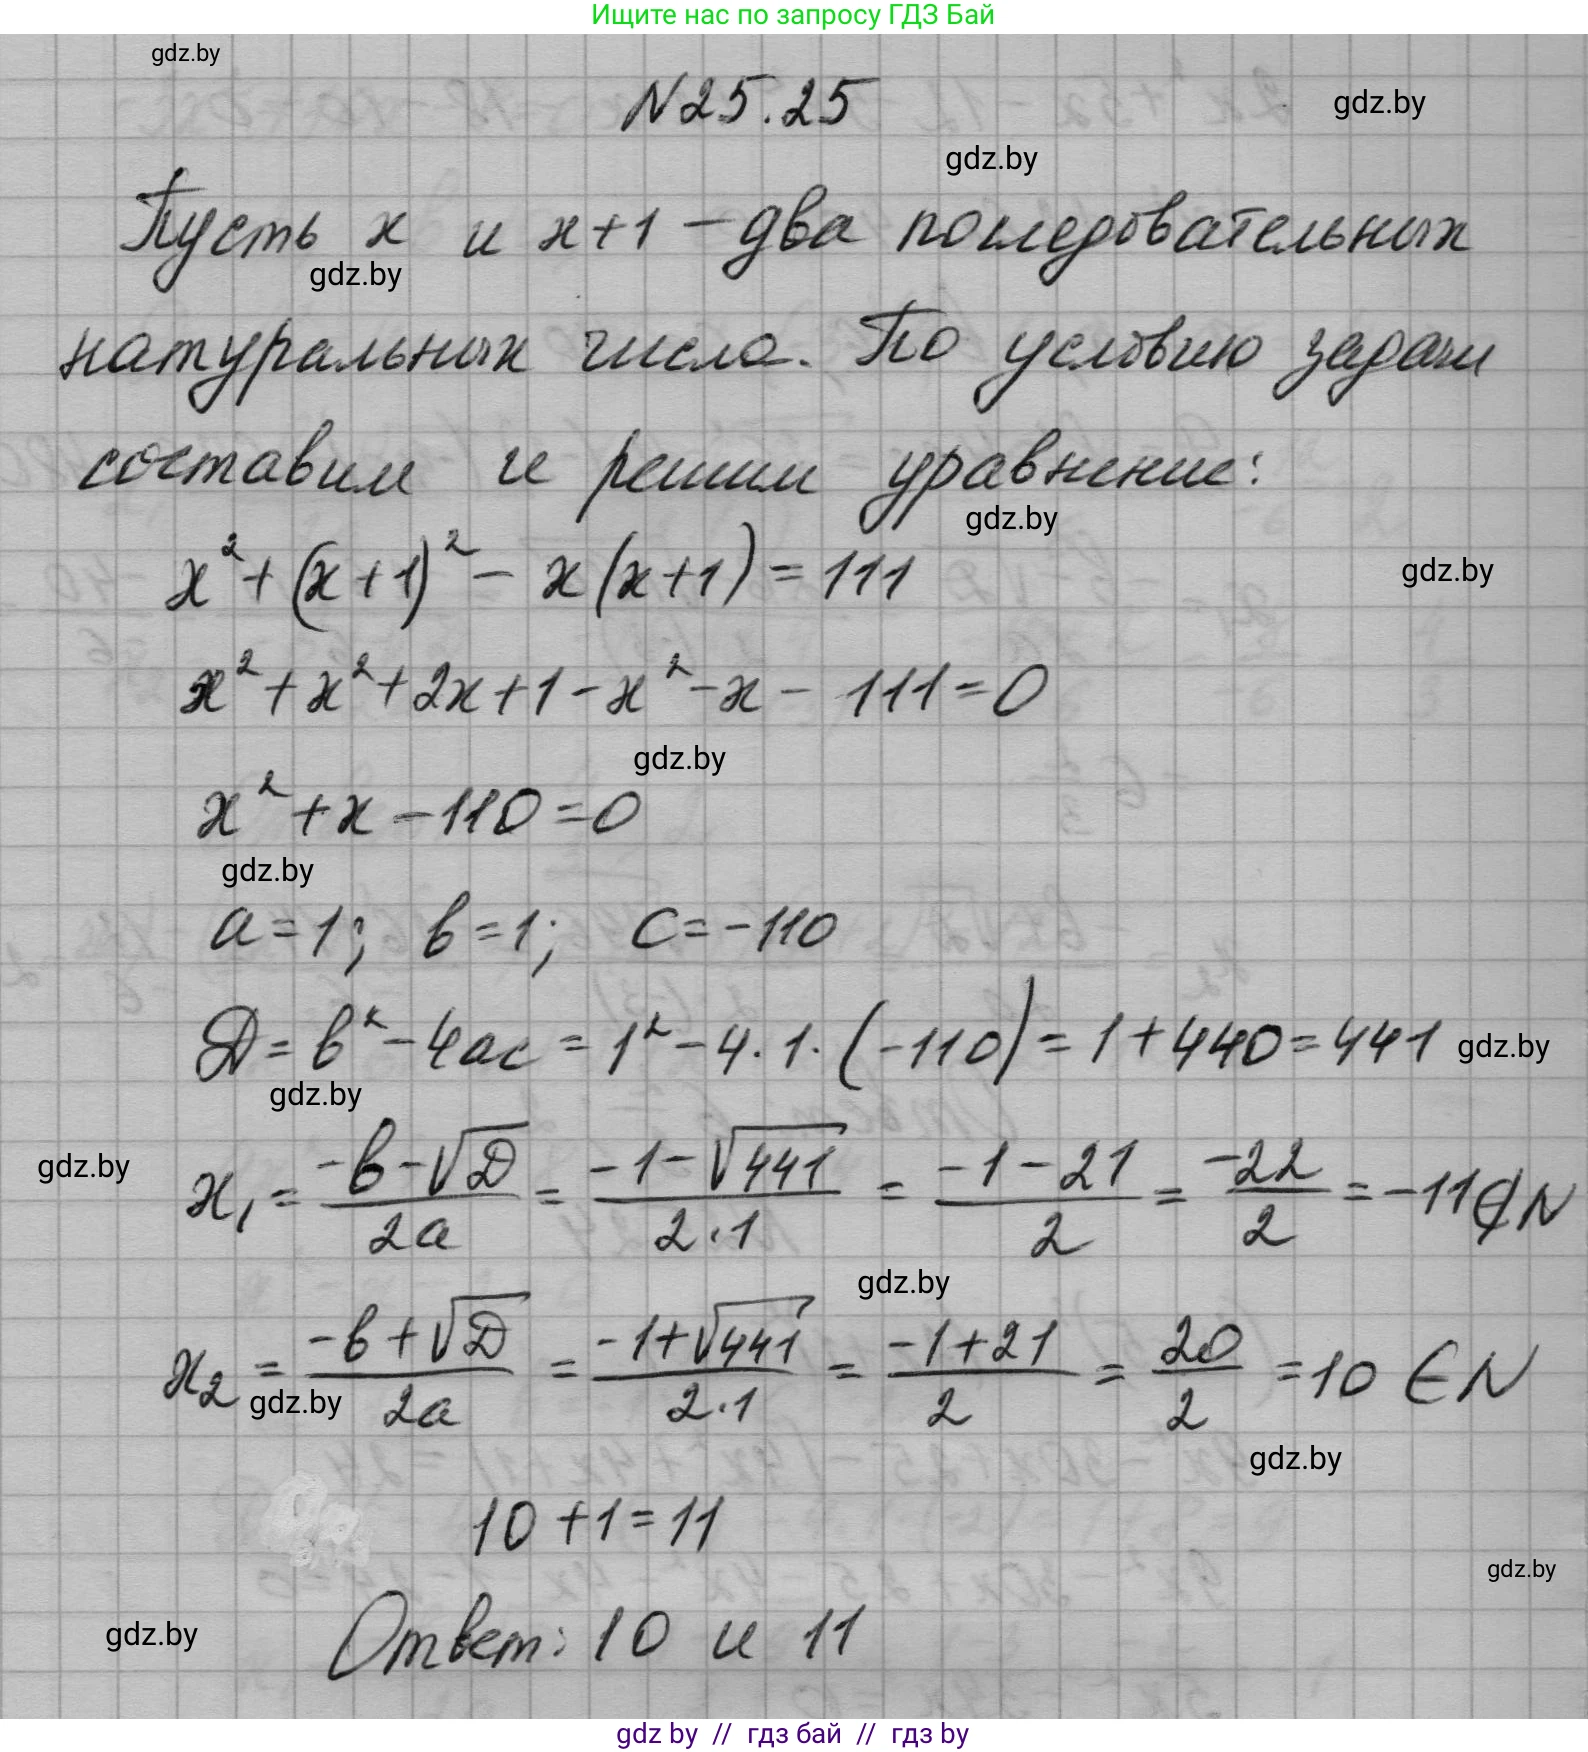 Ищите нас по запросу ГДЗ Бай
gdz.by
N25.25
gdz.by
gdz.by
Пусть x и x+1 – два последовательных
gdz.by
натуральных числа. По условию задачи
составим и решим уравнение:
gdz.by
x² + (x+1)² - x(x+1) = 111
gdz.by
x² + x² + 2x + 1 - x² - x - 111 = 0
gdz.by
x² + x - 110 = 0
gdz.by
a = 1; b = 1; c = -110
D = b² - 4ac = 1² - 4·1·(-110) = 1 + 440 = 441
gdz.by
gdz.by
gdz.by
x₁ = (-b-√D)/(2a) = (-1-√441)/(2·1) = (-1-21)/2 = (-22)/2 = -11 ∉ N
gdz.by
x₂ = (-b+√D)/(2a) = (-1+√441)/(2·1) = (-1+21)/2 = 20/2 = 10 ∈ N
gdz.by
gdz.by
10 + 1 = 11
gdz.by
Ответ: 10 и 11
gdz.by
gdz by // гдз бай // гдз by